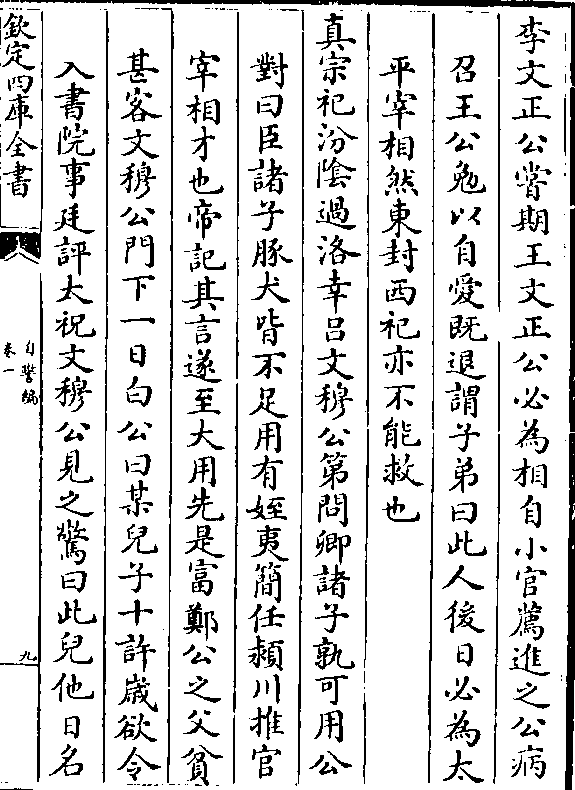 李文正公嘗期王文正公必為相自小官薦進之公病
召王公勉以自愛既退謂子弟曰此人後日必為太
平宰相然東封西祀亦不能救也
真宗祀汾陰過洛幸吕文穆公第問卿諸子孰可用公
對曰臣諸子豚犬皆不足用有姪夷簡任潁川推官
宰相才也帝記其言遂至大用先是富鄭公之父貧
甚客文穆公門下一日白公曰某兒子十許歲欲令
入書院事廷評太祝文穆公見之驚曰此兒他日名
欽定四庫全書
自警編
卷一
九